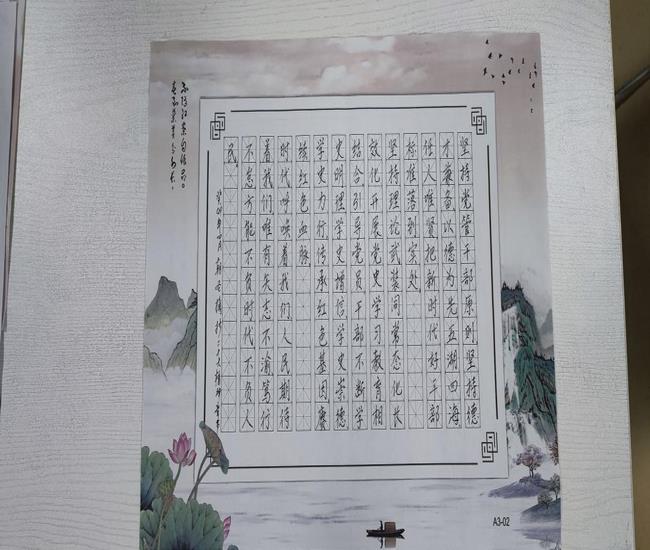 坚持党管干部原则坚持德
才兼备以德为先五湖四海
任人唯贤把新时代好干部
标准落到实处
坚持理论武装同常态化长
效化开展党史学习教育相
结合引导党员干部不断学
史明理学史增信学史崇德
学史力行传承红色基因赓
续红色血脉
时代呼唤着我们人民期待
着我们唯有矢志不渝笃行
不怠方能不负时代不负人
民
A3-02